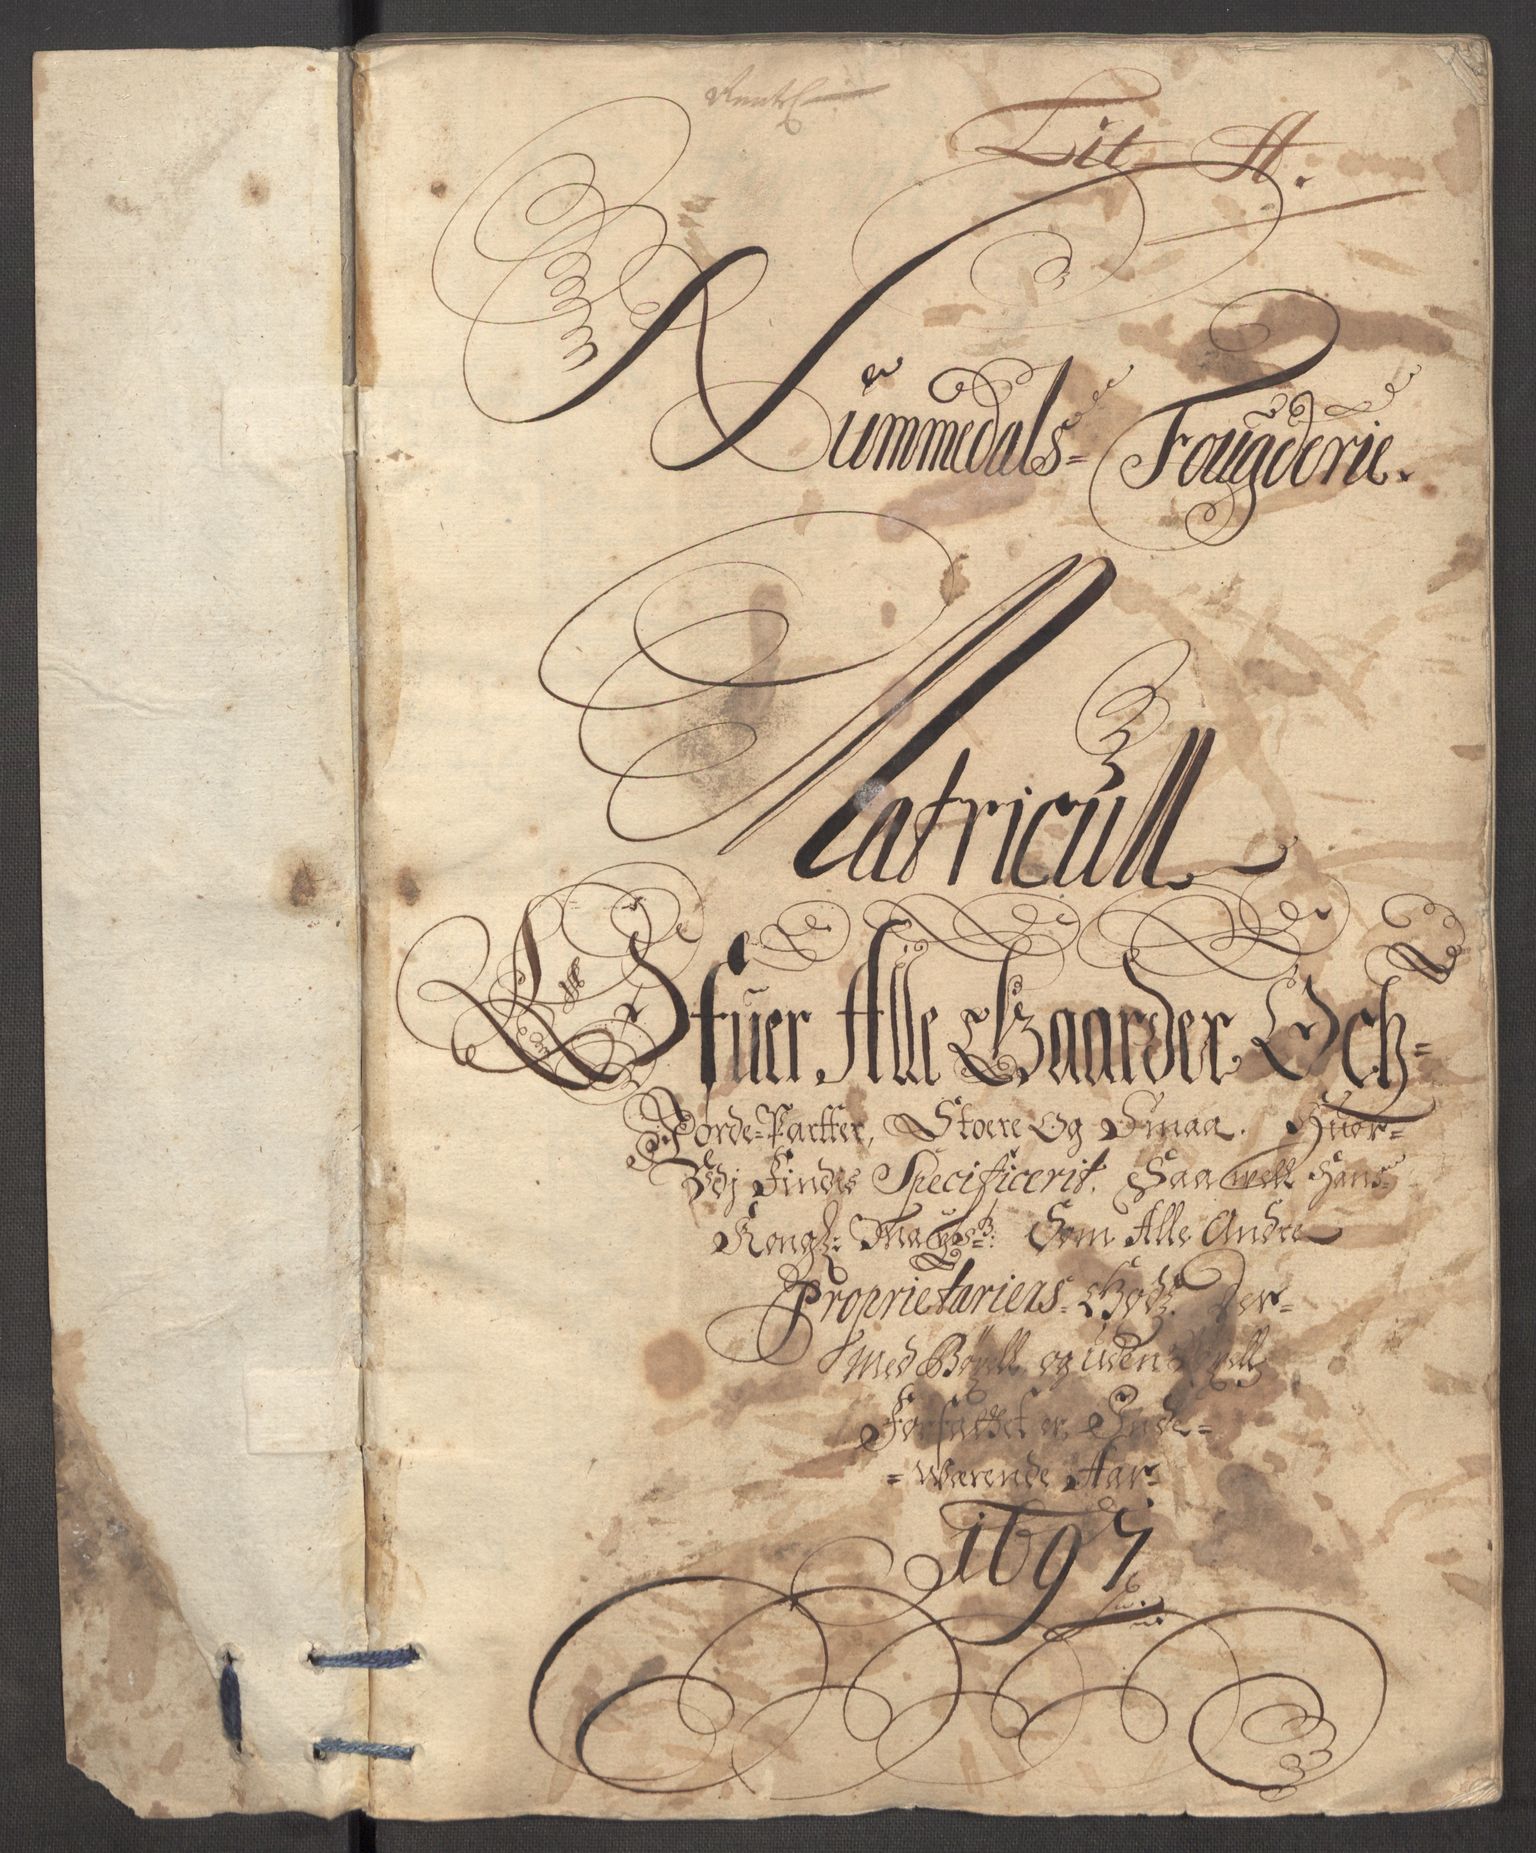 Lit A.
Nummedals= Fougderie.
Matricull
Ofuer Alle Gaarder Och=
Jorde=Partter, Stoere Og Smaa. Huor=
Vdj Findis Specificerit. Saa well Hans
Kongl: Mayts: Som Alle Andre
Proprietariers Godz. Der=
Med Bøxell og uden Bøxell
Forfattet er, Inde=
=Wærende Aar
1697